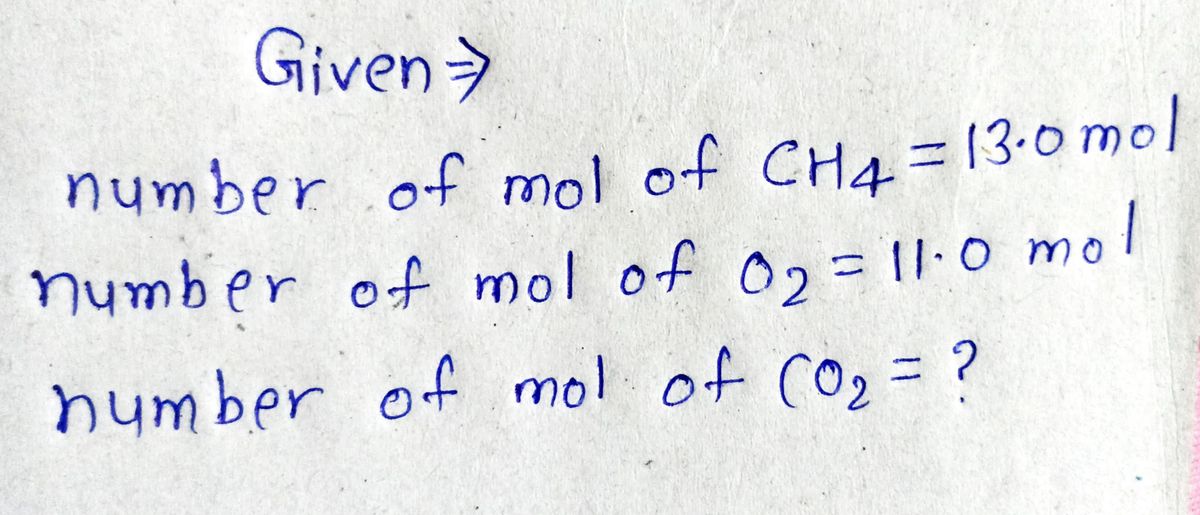 Given ⇒
number of mol of CH4 = 13.0 mol
number of mol of O2 = 11.0 mol
number of mol of CO2 = ?